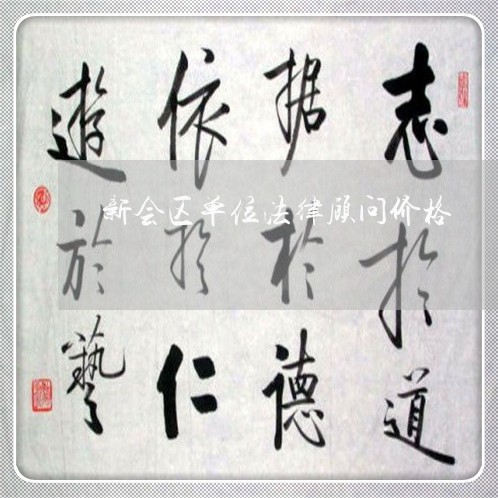 志於道
据於德
依於仁
遊於藝
新会区单位法律顾问价格